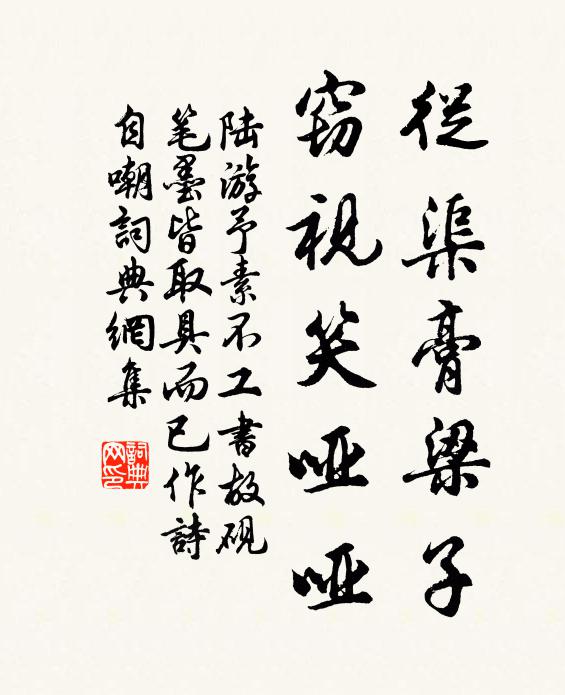 從渠膏粱子
窃視笑哑哑
陆游予素不工書故硯
笔墨皆取具而已作詩
自嘲詞典網集
詞典网印